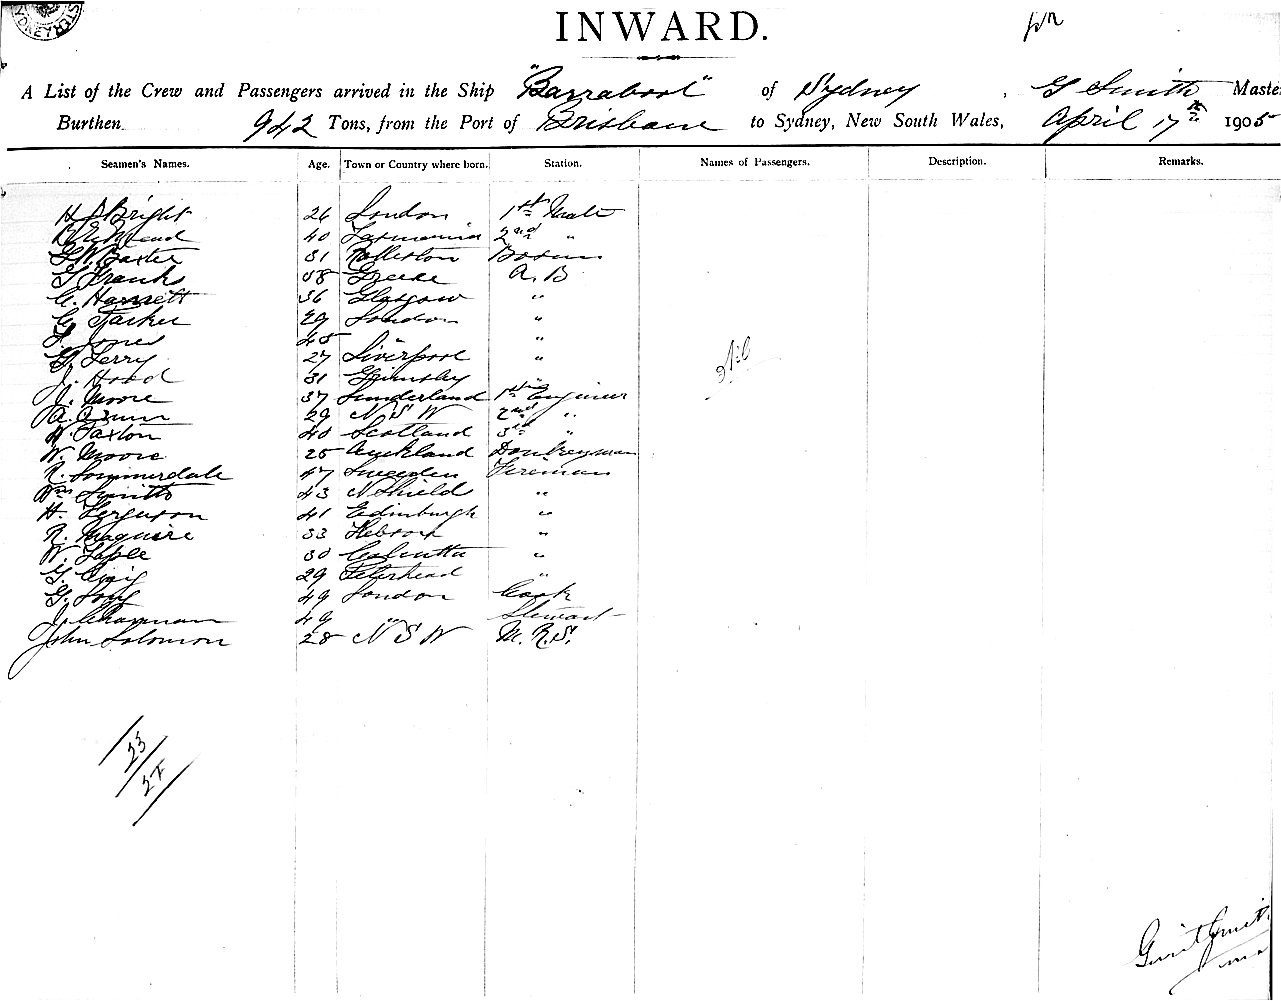 INWARD.
A List of the Crew and Passengers arrived in the Ship "Barrabool" of Sydney, G Smith Maste
Burthen 942 Tons, from the Port of Brisbane to Sydney, New South Wales, April 17th 1905
Seamen's Names. Age. Town or Country where born. Station. Names of Passengers. Description. Remarks.
H Bright 26 London 1st Mate
40 Tasmania 2nd "
G W Baxter 31 Rolleston Bosun
G Frank 58 Greece A.B
C. Harnett 36 Glasgow "
C. Tasker 29 London "
Jones 45 " "
G. Terry 27 Liverpool "
J. Hood 31 Grimsby "
J. Moore 37 Sunderland 1st Engineer
A. Quinn 29 N S W 2nd "
W. Paxton 40 Scotland 3rd "
W. Moore 25 Auckland Donkeyman
R. Sommerdale 47 Sweeden Fireman
Wm Smith 43 N Shield "
H. Ferguson 41 Edinburgh "
R. Maguire 33 "
W. 30 Calcutta "
G. Craig 29 Peterhead "
G. Long 49 London Cook
J. Chapman 49 " Steward
John Solomon 28 N S W M.R.S.
Nil
23/27